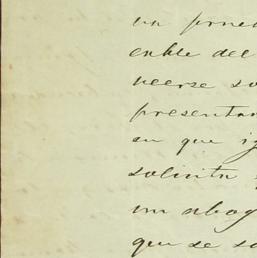 un prue
enble del
neerse so
presentan
en que ig
solicita
un abog
que se so